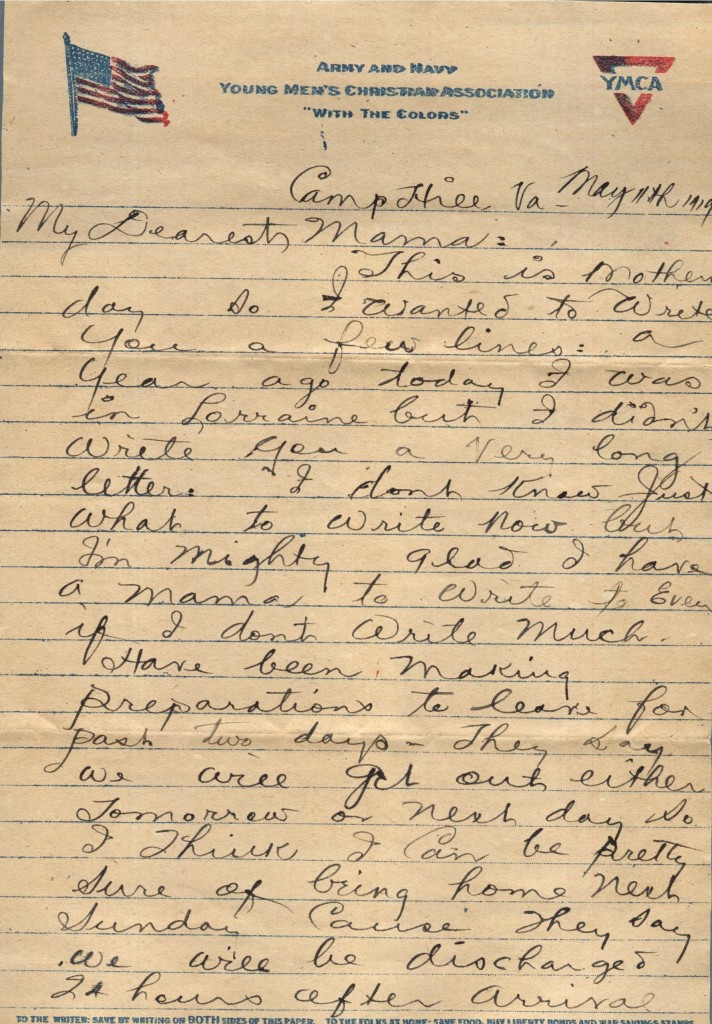 ARMY AND NAVY
YOUNG MEN'S CHRISTIAN ASSOCIATION
"WITH THE COLORS"
YMCA
Camp Hill Va - May 11th 1919
My Dearest Mama:
This is Mother
day so I wanted to Write
You a few lines: a
Year ago today I was
in Lorraine but I didn't
Write You a Very long
letter. I dont Know Just
What to Write Now but
I'm Mighty Glad I have
a Mama to Write to Even
if I dont Write Much.
Have been Making
preparations to leave for
past two days - They say
we will get out either
Tomorrow or next day So
I Think I Can be pretty
Sure of being home Next
Sunday Cause They say
we will be discharged
24 hours after Arrival
TO THE WRITER: SAVE BY WRITING ON BOTH SIDES OF THIS PAPER. TO THE FOLKS AT HOME: SAVE FOOD, BUY LIBERTY BONDS AND WAR SAVINGS STAMPS